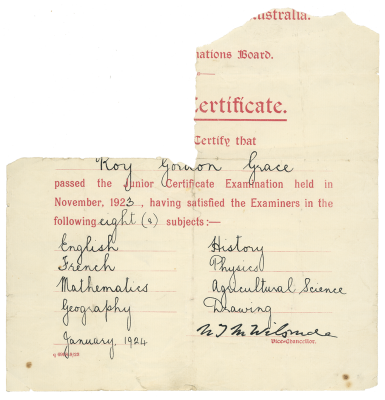 ustralia.
nations Board.
Certificate.
Certify that
Roy Gordon Grace
passed the Junior Certificate Examination held in
November, 1923, having satisfied the Examiners in the
following eight (8) subjects:—
English History
French Physics
Mathematics Agricultural Science
Geography Drawing
January, 1924
Vice-Chancellor.